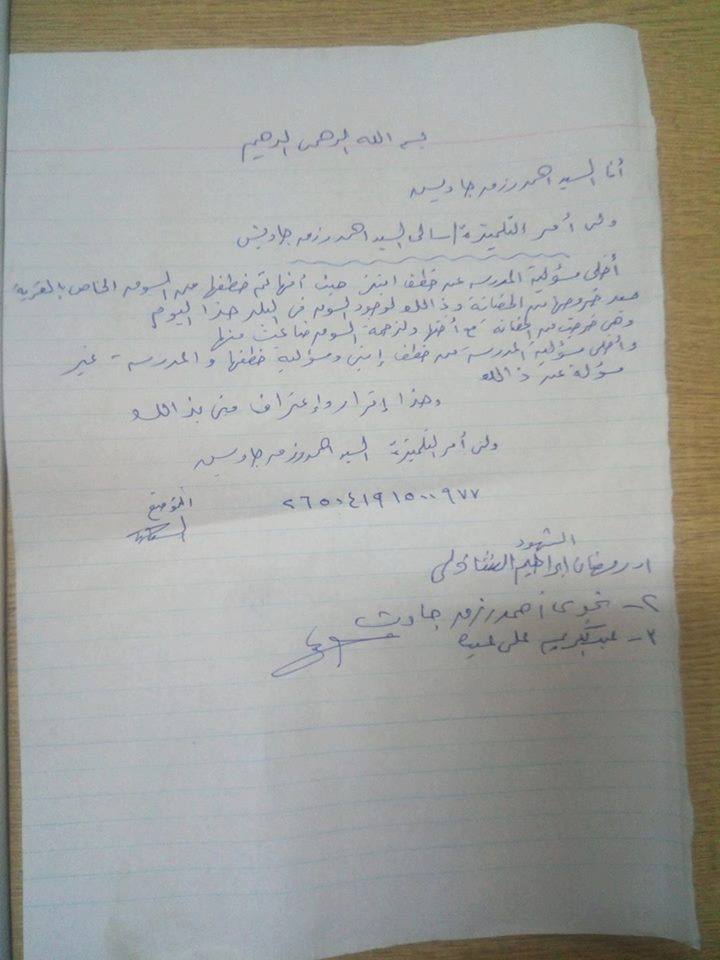 بسم الله الرحمن الرحيم
أنا السيد احمد رزمه جاويش
ولى أمر التلميذة / سالى السيد احمد رزمه جاويش
أخلى مسؤلية المدرسه عن خطف ابنتى حيث أنها تم خطفها من السوق الخاص بالقرية
بعد خروجها من الحضانة وذاللك لوجود السوق فى البلد هذا اليوم
وهى خرجت من الحضانة مع أختها ولزحمة السوق ضاعت منها
وأخلى مسؤلية المدرسة من خطف إبنتى ومسؤلية خطفها والمدرسة غير
مسؤلة عن ذاللك
وهذا إقرار وإعتراف منى بذاللك
ولى أمر التلميذة السيد احمد رزمه جاويش
٢٦٥٠٤١٩١٥٠٠٩٧٧ الموقع
السيد
الشهود
١- رمضان ابراهيم الشاذلى
٢- نجوى أحمد رزمه جاويش
٣- عبدالكريم على